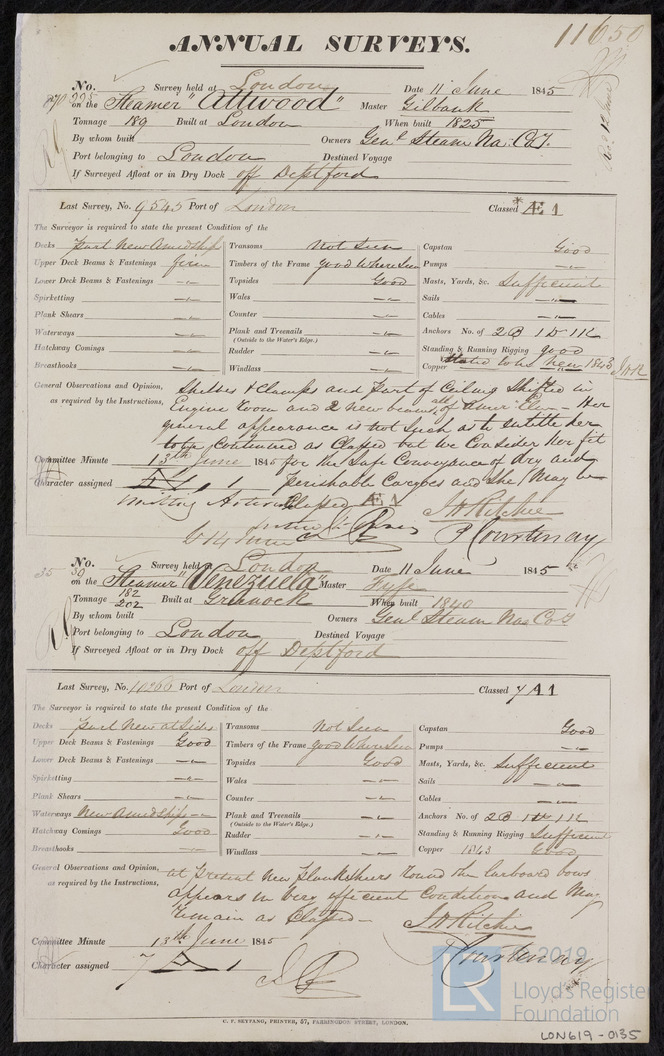 11650
ANNUAL SURVEYS.
No. Survey held at London Date 11 June 1845
on the Steamer "Attwood" Master Gilbank
Tonnage 189 Built at London When built 1825
By whom built Owners Genl Steam Na: Co
Port belonging to London Destined Voyage
If Surveyed Afloat or in Dry Dock off Deptford
Last Survey, No. 9545 Port of London Classed *Æ1
The Surveyor is required to state the present Condition of the
Decks part New Amidships Transoms Not Seen Capstan Good
Upper Deck Beams & Fastenings firm Timbers of the Frame good Where Seen Pumps
Lower Deck Beams & Fastenings Topsides Good Masts, Yards, &c. Sufficient
Spirketting Wales Sails
Plank Shears Counter Cables
Waterways Plank and Treenails Anchors No. of 2B 1S 1K
(Outside to the Water's Edge.)
Hatchway Comings Rudder Standing & Running Rigging good
Breasthooks Windlass Copper new 1843
General Observations and Opinion, Shelves & Clamps and part of Ceiling Shifted in
as required by the Instructions, Engine Room and 2 New beams, all of Amer Elm - Her
general appearance is not such as to entitle her
to be continued as Classed but We Consider her fit
Committee Minute 13th June 1845 for the Safe Conveyance of dry and
Character assigned 1 perishable Cargoes and She May be
Classed Æ1
J H Ritchie
P Courtenay
No. Survey held London Date 11 June 1845
on the Steamer "Venezuela" Master Fyfe
Tonnage 182 202 Built at Greenock When built 1840
By whom built Owners Genl Steam Nav Co
Port belonging to London Destined Voyage
If Surveyed Afloat or in Dry Dock off Deptford
Last Survey, No. 10266 Port of London Classed 7 A1
The Surveyor is required to state the present Condition of the
Decks part New at Sides Transoms Not Seen Capstan Good
Upper Deck Beams & Fastenings Good Timbers of the Frame good Where Seen Pumps
Lower Deck Beams & Fastenings Topsides Good Masts, Yards, &c. Sufficient
Spirketting Wales Sails
Plank Shears Counter Cables
Waterways New Amidships Plank and Treenails Anchors No. of 2B 1S 1K
(Outside to the Water's Edge.)
Hatchway Comings Good Rudder Standing & Running Rigging Sufficient
Breasthooks Windlass Copper 1843 Good
General Observations and Opinion, at present New Planksheers round the larboard bows
as required by the Instructions, appears in Very efficient Condition and May
Remain as Classed -
J H Ritchie
Committee Minute 13th June 1845
P Courtenay
Character assigned 7 A 1
C. F. SEYFANG, PRINTER, 57, FARRINGDON STREET, LONDON.
LR © 2019
Lloyd's Register
Foundation
LON619-0135